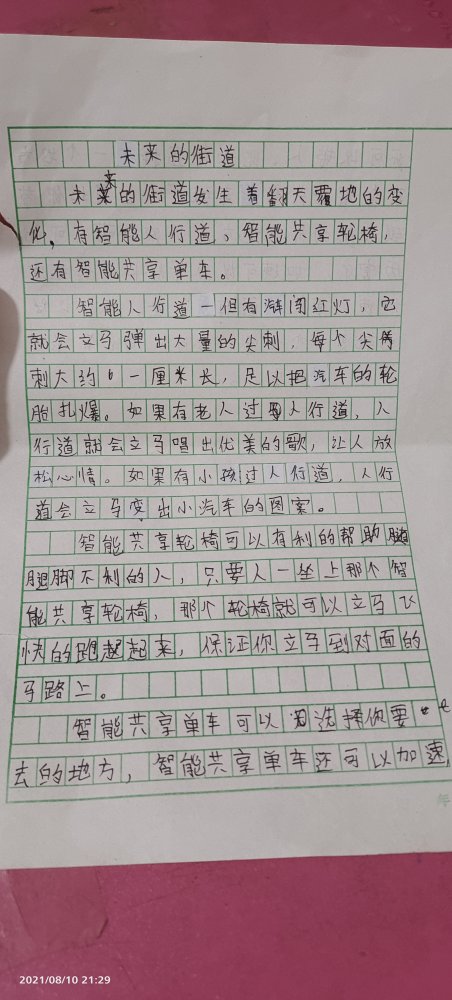 未来的街道
未来的街道发生着翻天覆地的变
化，有智能人行道、智能共享轮椅，
还有智能共享单车。
智能人行道一但有海闯红灯，它
就会立马弹出大量的尖刺，每个尖
刺大约一厘米长，足以把汽车的轮
胎扎爆。如果有老人过人行道，人
行道就会立马唱出优美的歌，让人放
松心情。如果有小孩过人行道，人行
道会立马变出小汽车的图案。
智能共享轮椅可以有利的帮助
腿脚不利的人，只要人一坐上那个智
能共享轮椅，那个轮椅就可以立马飞
快的跑起来，保证你立马到对面的
马路上。
智能共享单车可以选择你要
去的地方，智能共享单车还可以加速，
2021/08/10 21:29